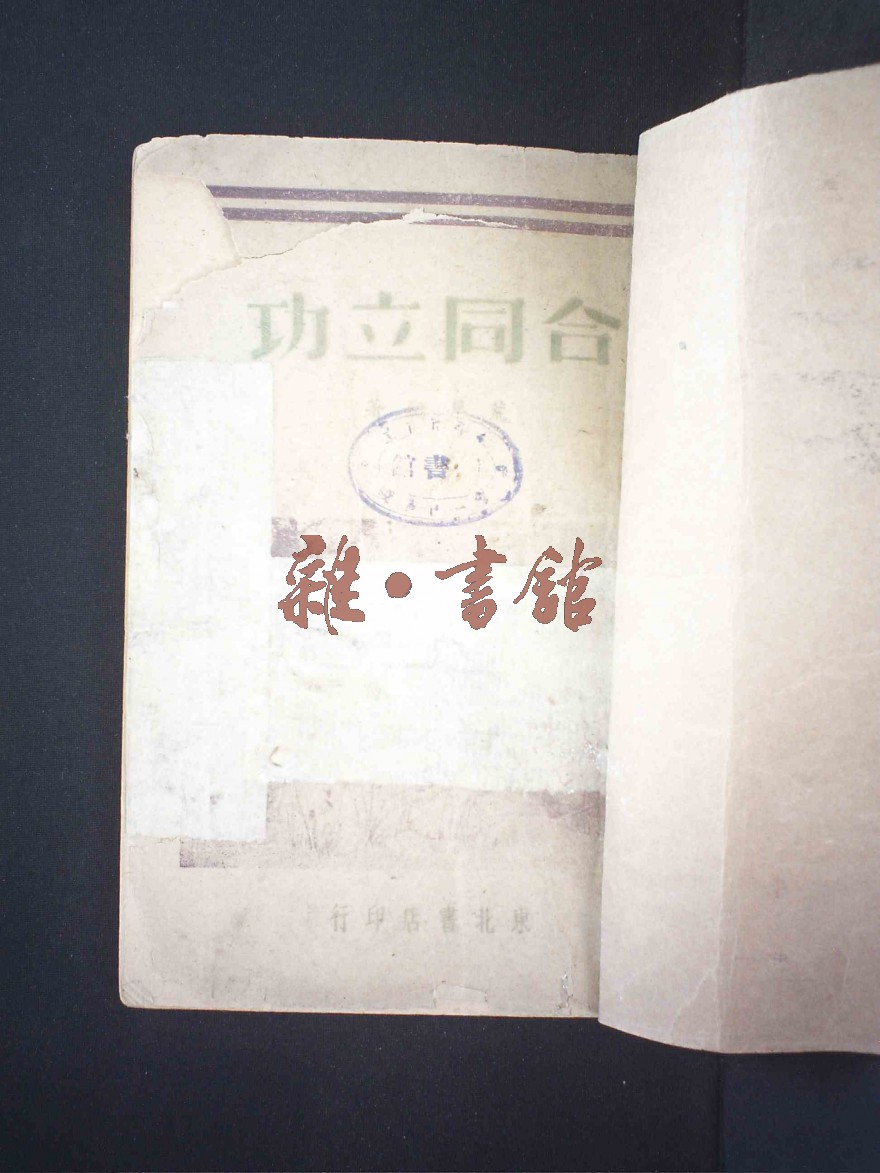 合同立功
書館
雜·書館
東北書店印行